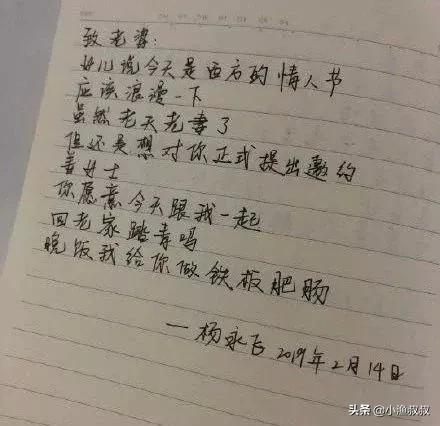 致老婆:
女儿说今天是西方的情人节
应该浪漫一下
虽然老夫老妻了
但还是想对你正式提出邀约
姜女士
你愿意今天跟我一起
回老家踏青吗
晚饭我给你做铁板肥肠
一杨永飞 2019年2月14日
头条 @小渔叔叔